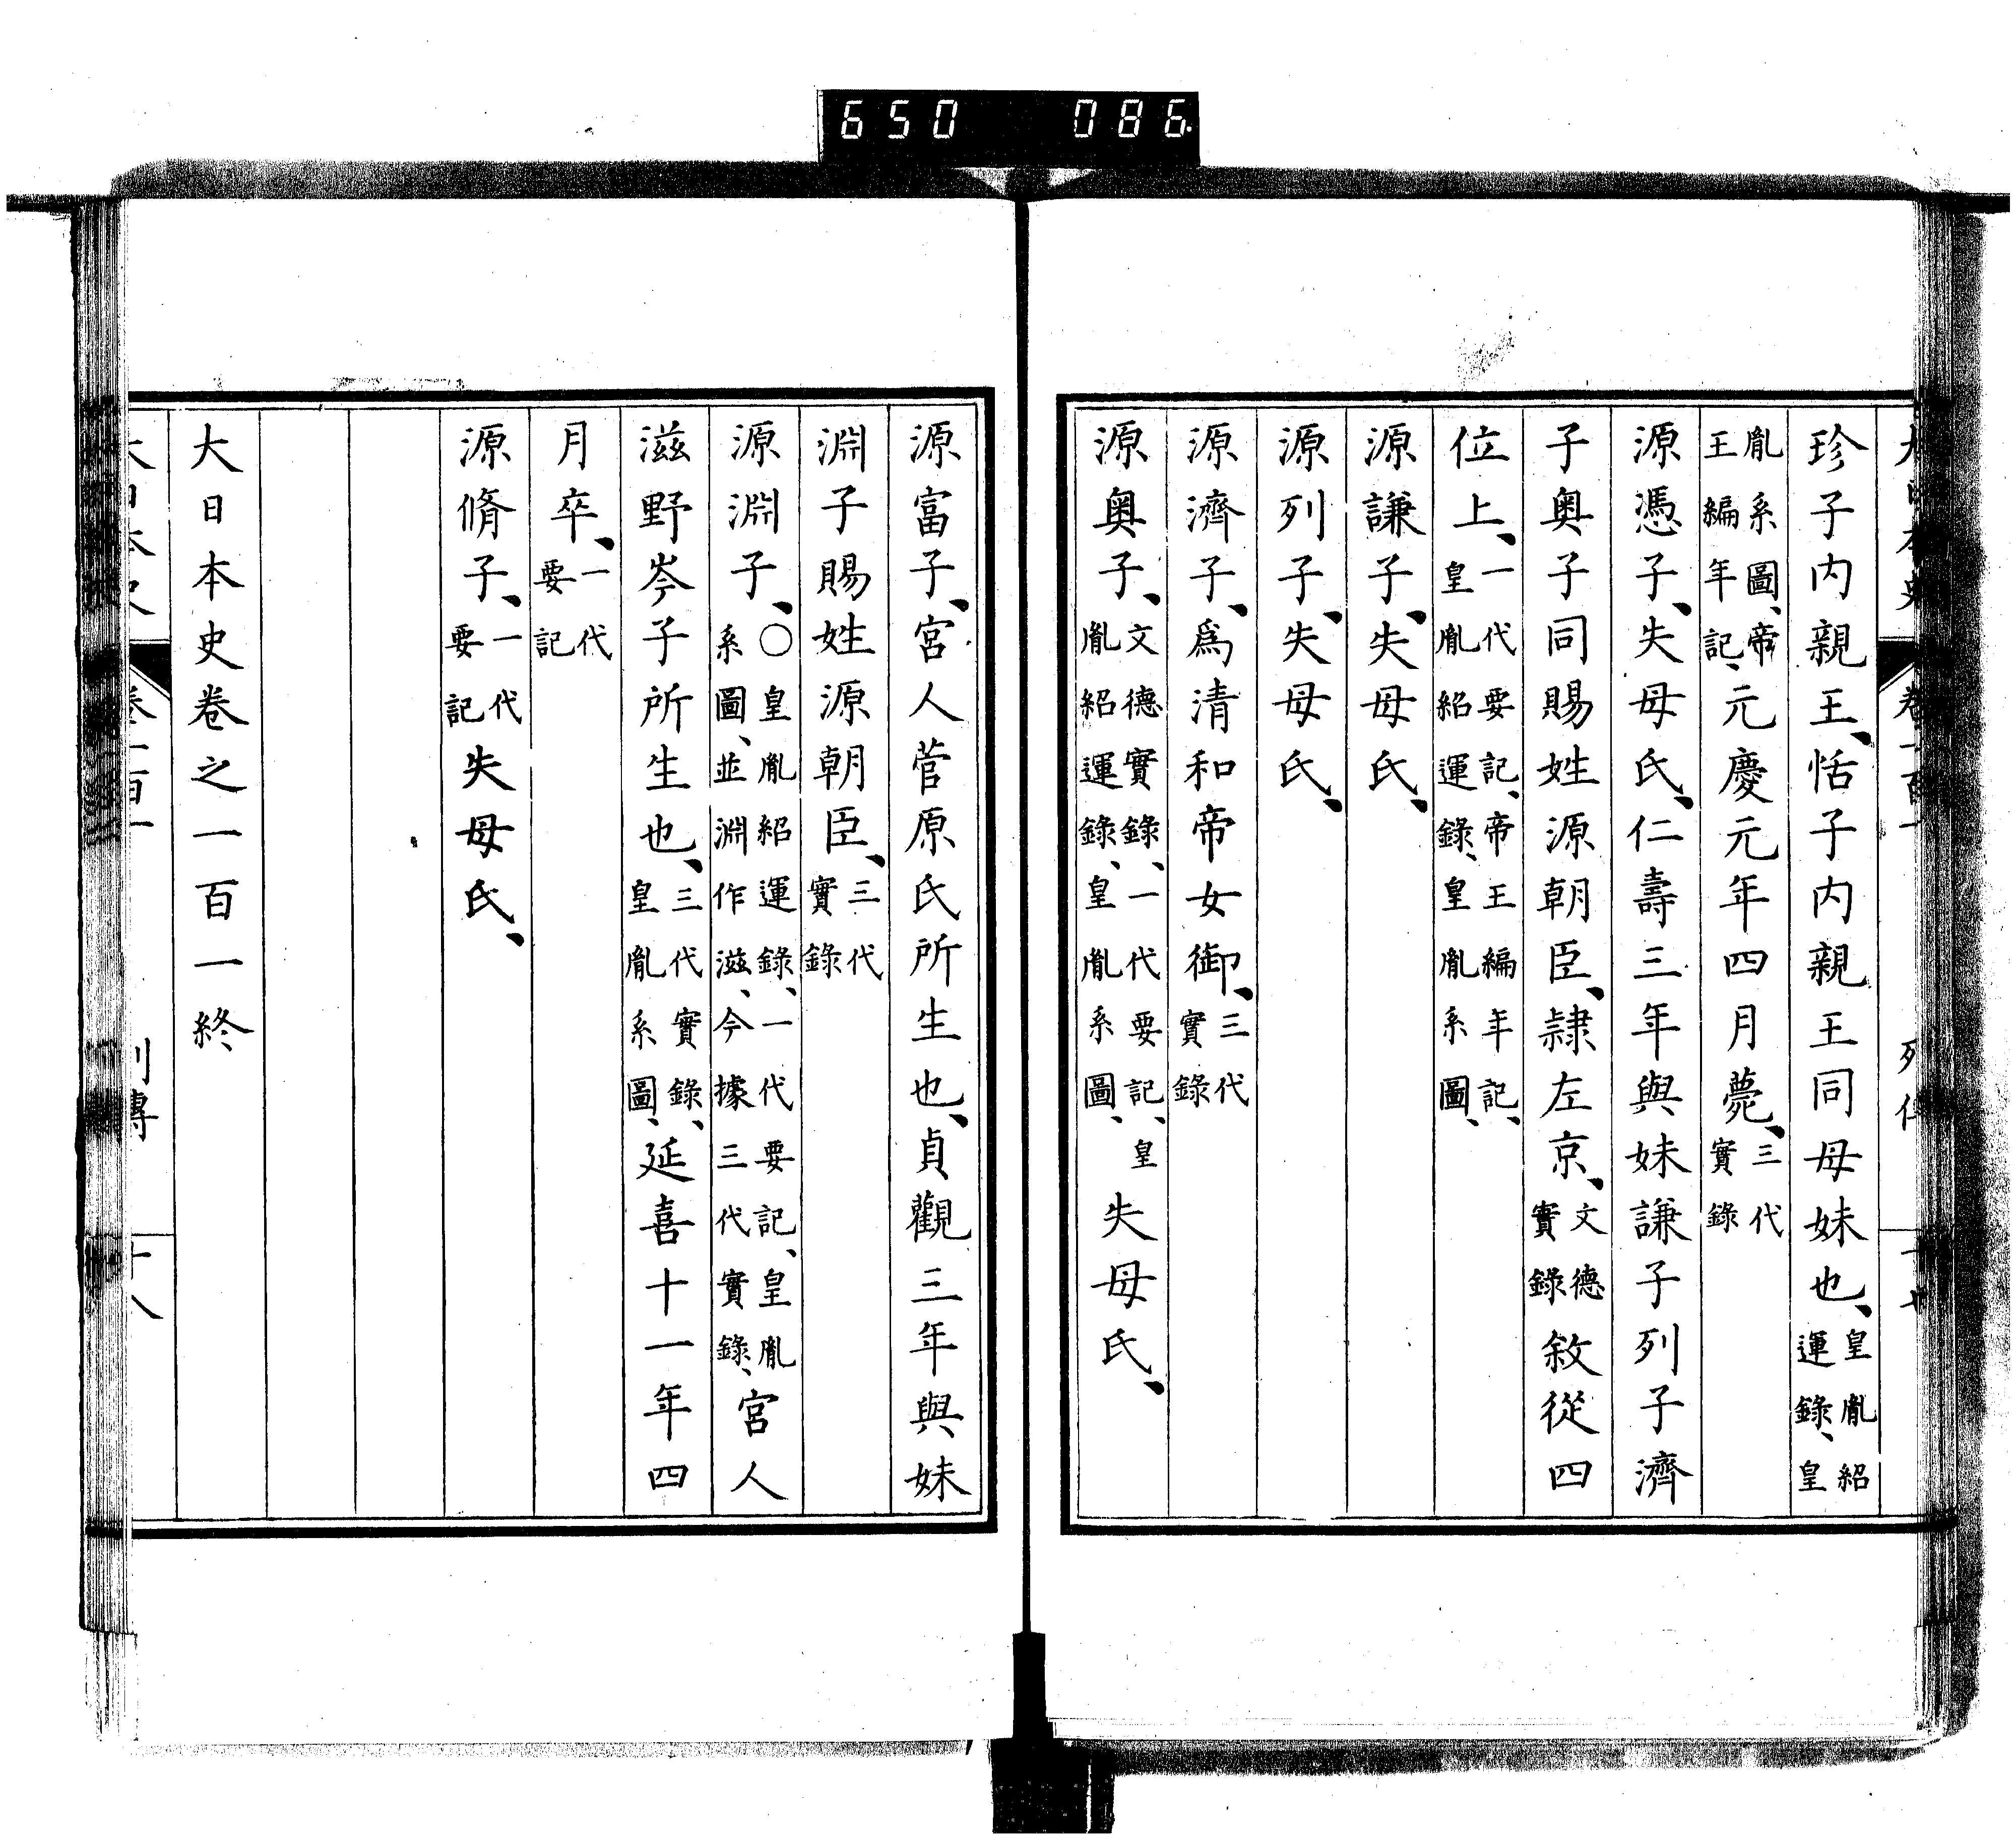 650 086
珍子内親王、恬子内親王同母妹也、皇胤紹運錄、皇
胤系圖、帝王編年記、元慶元年四月薨、三代實錄
源憑子、失母氏、仁壽三年與妹謙子列子濟
子奥子同賜姓源朝臣、隷左京、文德實錄敘從四
位上、一代要記、帝王編年記、皇胤紹運錄、皇胤系圖、
源謙子、失母氏、
源列子、失母氏、
源濟子、爲清和帝女御、三代實錄
源奥子、文德實錄、一代要記、皇胤紹運錄、皇胤系圖、失母氏、
源富子、宮人菅原氏所生也、貞觀三年與妹
淵子賜姓源朝臣、三代實錄
源淵子、〇皇胤紹運錄、一代要記、皇胤系圖、並淵作滋、今據三代實錄、宮人
滋野岑子所生也、三代實錄、皇胤系圖、延喜十一年四
月卒、一代要記
源脩子、一代要記失母氏、
大日本史卷之一百一終